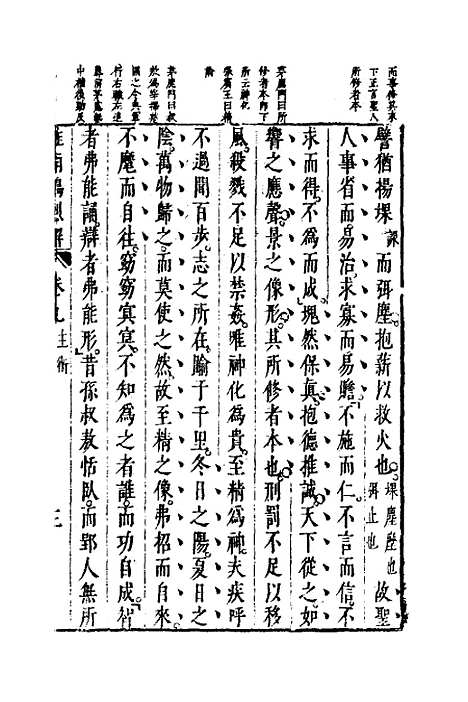 而事修其末
下正言聖人
所修者本
茅鹿門曰所
修者本內下
所云神化
張賓王曰精
論
茅鹿門曰叔
國之令典軍
行右轅左追
蓐前茅慮無
中權後勁及
譬猶揚堁課而弭塵抱薪以救火也堁塵塵也弭止也故聖
人事省而易治求寡而易贍不施而仁不言而信不
求而得不為而成塊然保真抱德推誠天下從之如
響之應聲景之像形其所修者本也刑罰不足以移
風殺戮不足以禁姦唯神化為貴至精為神夫疾呼
不過聞百步志之所在踰于千里冬日之陽夏日之
陰萬物歸之而莫使之然故至精之像弗招而自來
不麾而自往窈窈冥冥不知為之者誰而功自成智
者弗能誦辯者弗能形昔孫叔敖恬臥而郢人無所
淮南鴻烈解 卷九 主術 三